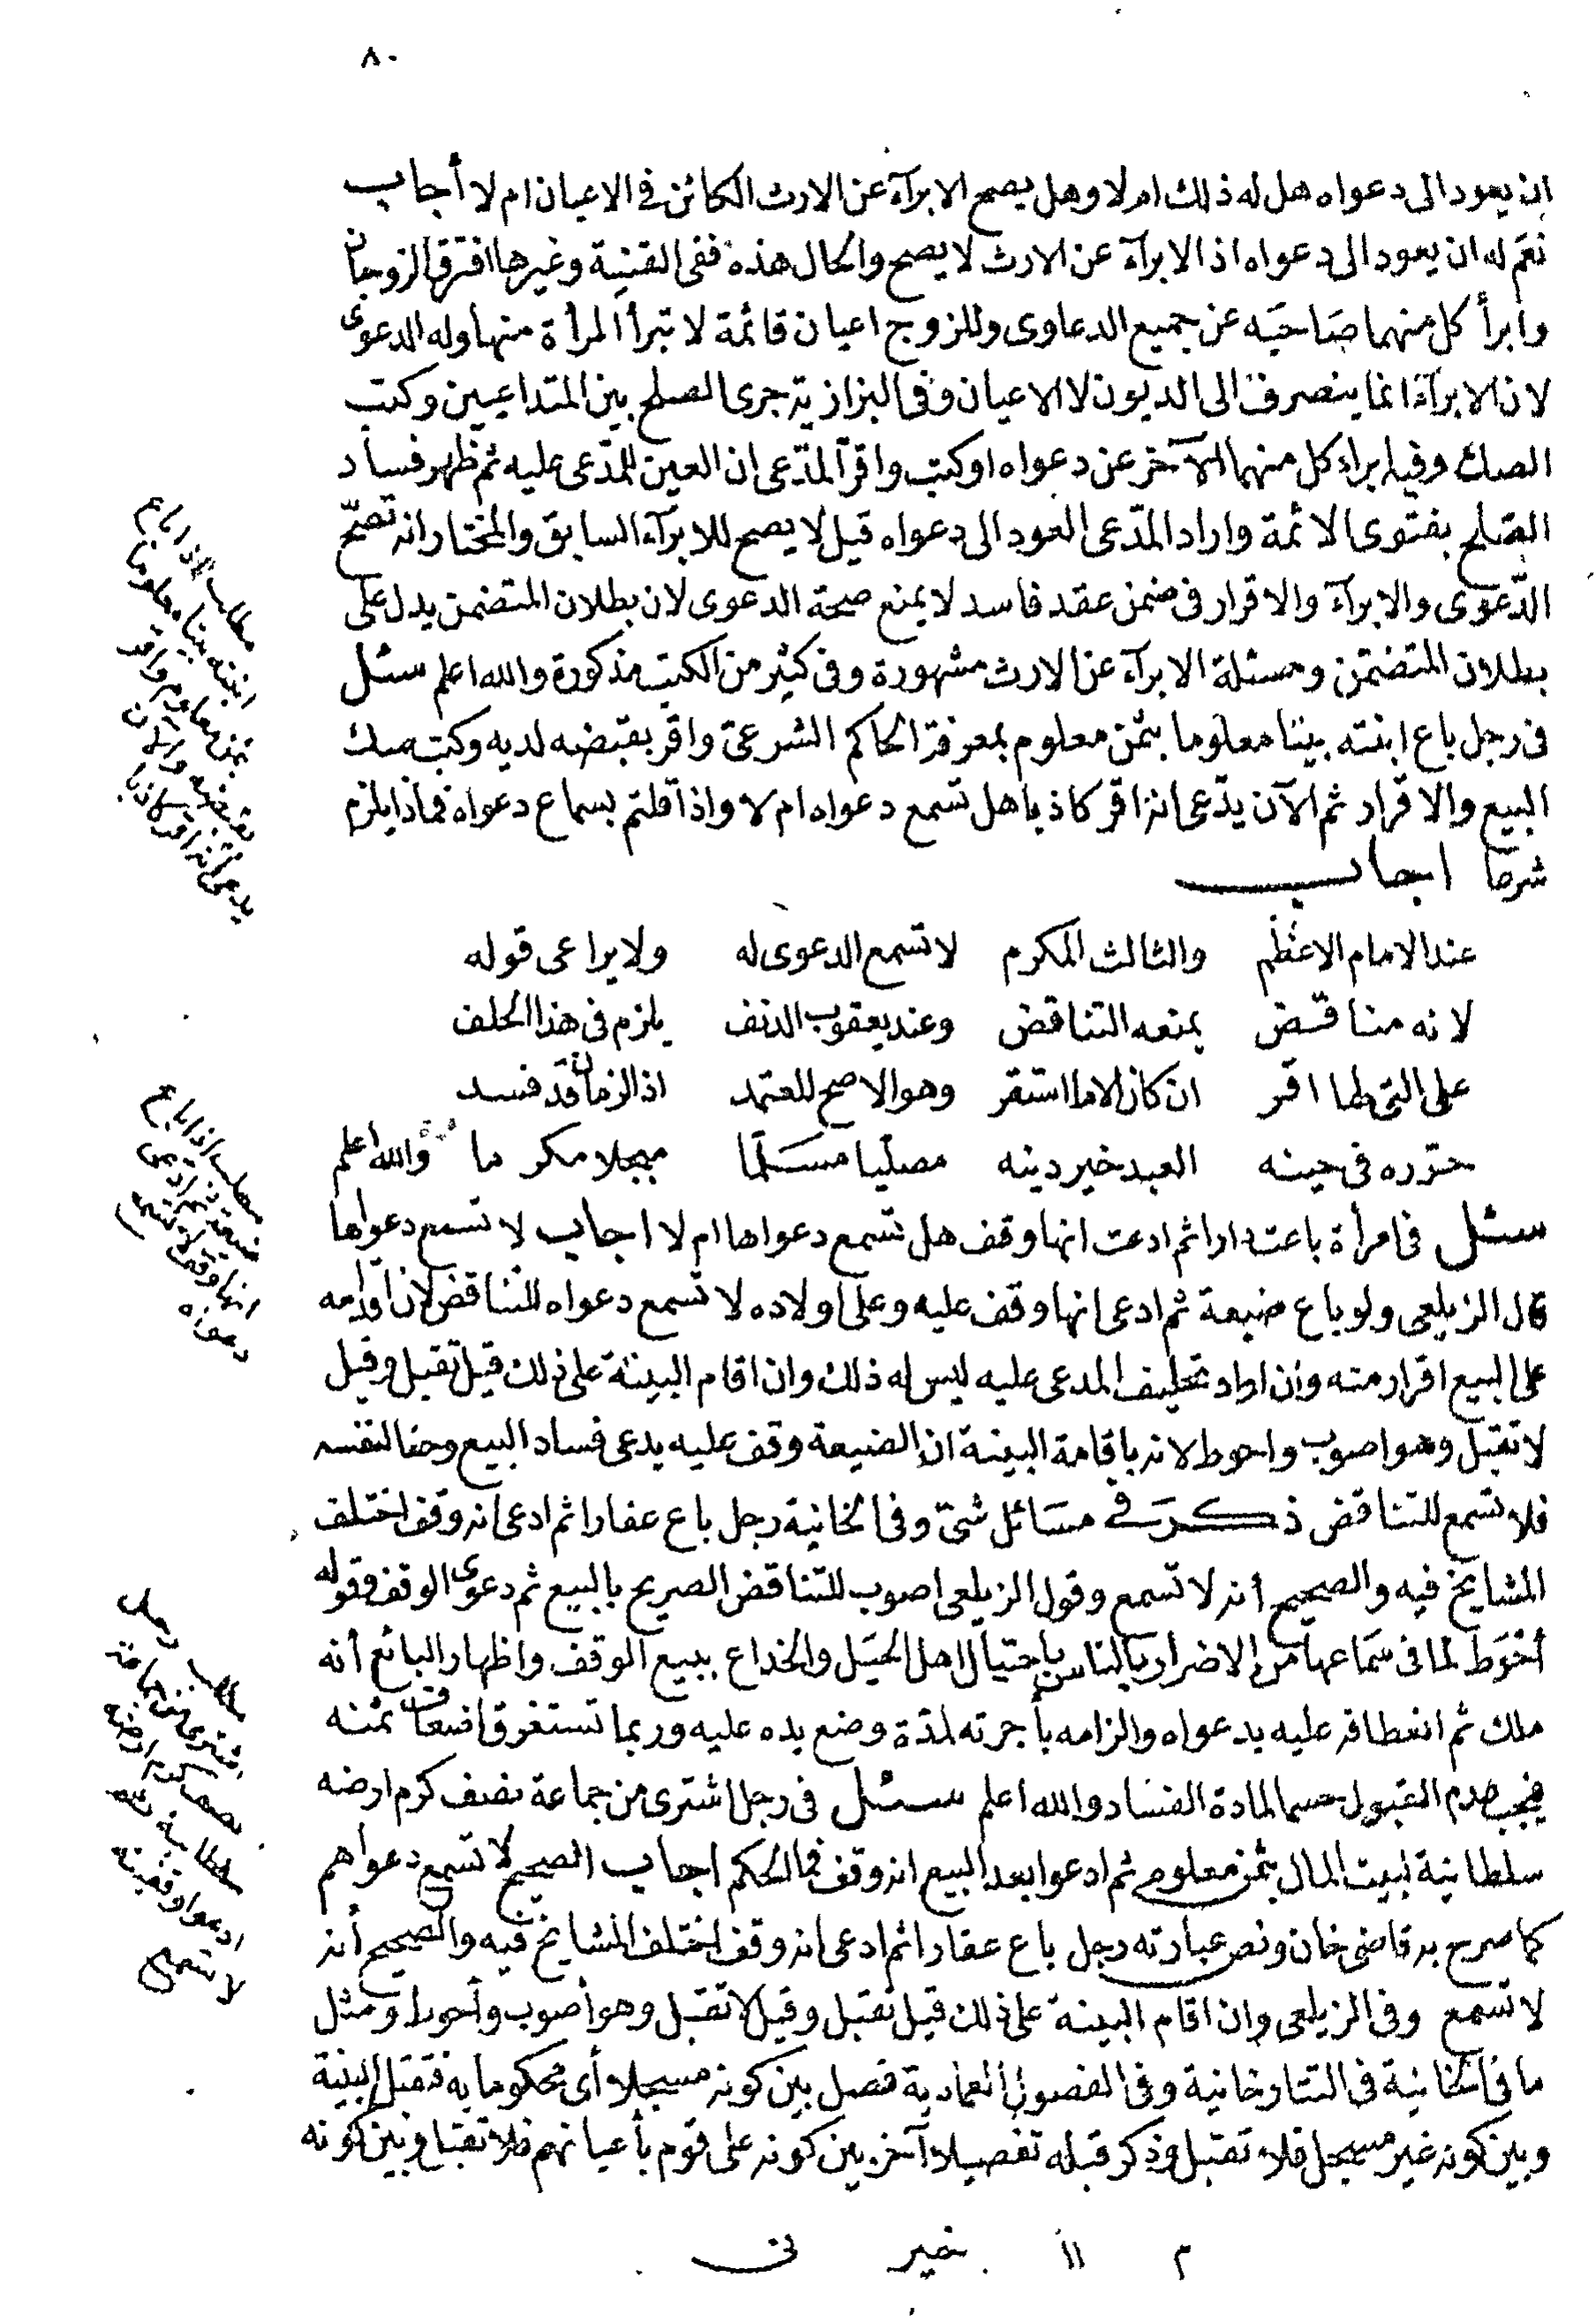 ٨٠
ان يعود الى دعواه هل له ذلك ام لا وهل يصح الابرآء عن الارث الكائن فى الاعيان ام لا أجاب
نعم له ان يعود الى دعواه اذ الابرآء عن الارث لا يصح والحال هذه ففى القنية وغيرها افترق الزوجان
وابرأ كل منهما صاحبه عن جميع الدعاوى وللزوج اعيان قائمة لا تبرأ المرأة منها وله الدعوى
لان الابرآء انما ينصرف الى الديون لا الاعيان وفى البزازية جرى الصلح بين المتداعيين وكتب
الصك وفيه ابراء كل منهما الآخر عن دعواه او كتب واقر المدّعى ان العين للمدّعى عليه ثم ظهر فساد
الصلح بفتوى الائمة واراد المدّعى العود الى دعواه قيل لا يصح للابرآء السابق والمختار انه تصحّ
الدّعوى والابرآء والاقرار فى ضمن عقد فاسد لا يمنع صحة الدعوى لان بطلان المتضمن يدل على
بطلان المتضمّن ومسئلة الابرآء عن الارث مشهورة وفى كثير من الكتب مذكورة والله اعلم سئل
فى رجل باع ابنته بيتا معلوما بثمن معلوم بمعرفة الحاكم الشرعىّ واقر بقبضه لديه وكتب صك
البيع والاقرار ثم الآن يدّعى انه اقر كاذبا هل تسمع دعواه ام لا واذا قلتم بسماع دعواه فماذا يلزم
شرعا اجاب
عند الامام الاعظم والثالث المكرم لا تسمع الدعوى له ولا يراعى قوله
لانه مناقض يمنعه التناقض وعند يعقوب الدنف يلزم فى هذا الحلف
على التى لها اقر ان كان الامر استقر وهو الاصح للعتمد اذ الزمان قد فسد
حرّره فى حينه العبد خير دينه مصليا مسلّما مبجلا مكرما والله اعلم
سئل فى امرأة باعت دارا ثم ادعت انها وقف هل تسمع دعواها ام لا اجاب لا تسمع دعواها
قال الزيلعى ولو باع ضيعة ثم ادعى انها وقف عليه وعلى اولاده لا تسمع دعواه للتناقض لان اقدامه
على البيع اقرار منه وان اراد تحليف المدعى عليه ليس له ذلك وان اقام البينة على ذلك قيل تقبل وقيل
لا تقبل وهو اصوب واحوط لانه باقامة البينة ان الضيعة وقف عليه يدعى فساد البيع وحقا لنفسه
فلا تسمع للتناقض ذكره فى مسائل شتى وفى الخانية رجل باع عقارا ثم ادعى انه وقف اختلف
المشايخ فيه والصحيح أنه لا تسمع وقول الزيلعى اصوب للتناقض الصريح بالبيع ثم دعوى الوقف وقوله
أحوط لما فى سماعها من الاضرار بالناس باحتيال اهل الحيل والخداع ببيع الوقف واظهار البائع أنه
ملك ثم انعطافه عليه بدعواه والزامه بأجرته لمدة وضع يده عليه وربما تستغرق اضعاف ثمنه
فيجب عدم القبول حسما لمادة الفساد والله اعلم سئل فى رجل اشترى من جماعة نصف كرم ارضه
سلطانية لبيت المال بثمن معلوم ثم ادعوا بعد البيع انه وقف فما الحكم اجاب الصحيح لا تسمع دعواهم
كما صرح به قاضى خان ونص عبارته رجل باع عقارا ثم ادعى انه وقف اختلف المشايخ فيه والصحيح أنه
لا تسمع وفى الزيلعى وان اقام البينة على ذلك قيل تقبل وقيل لا تقبل وهو أصوب وأحوط ومثل
ما فى الخانية فى التتارخانية وفى الفصول العمادية فصل بين كونه مسجلا أى محكوما به فتقبل البينة
وبين كونه غير مسجل فلا تقبل وذكر قبله تفصيلا آخر بين كونه على قوم بأعيانهم فلا تقبل وبين كونه
م ١١ خير نى
مطلب اذا باع
ابنته بيتا معلوما
بثمن معلوم واقر
بقبضه والآن
يدعى أنه اقر كاذبا
مطلب اذا باع
ضيعة ثم ادعى
انها وقف لا تسمع
دعواه
مطلب رجل
اشترى من جماعة
نصف كرم ارضه
سلطانية ثم
ادعوا وقفيته
لا تسمع